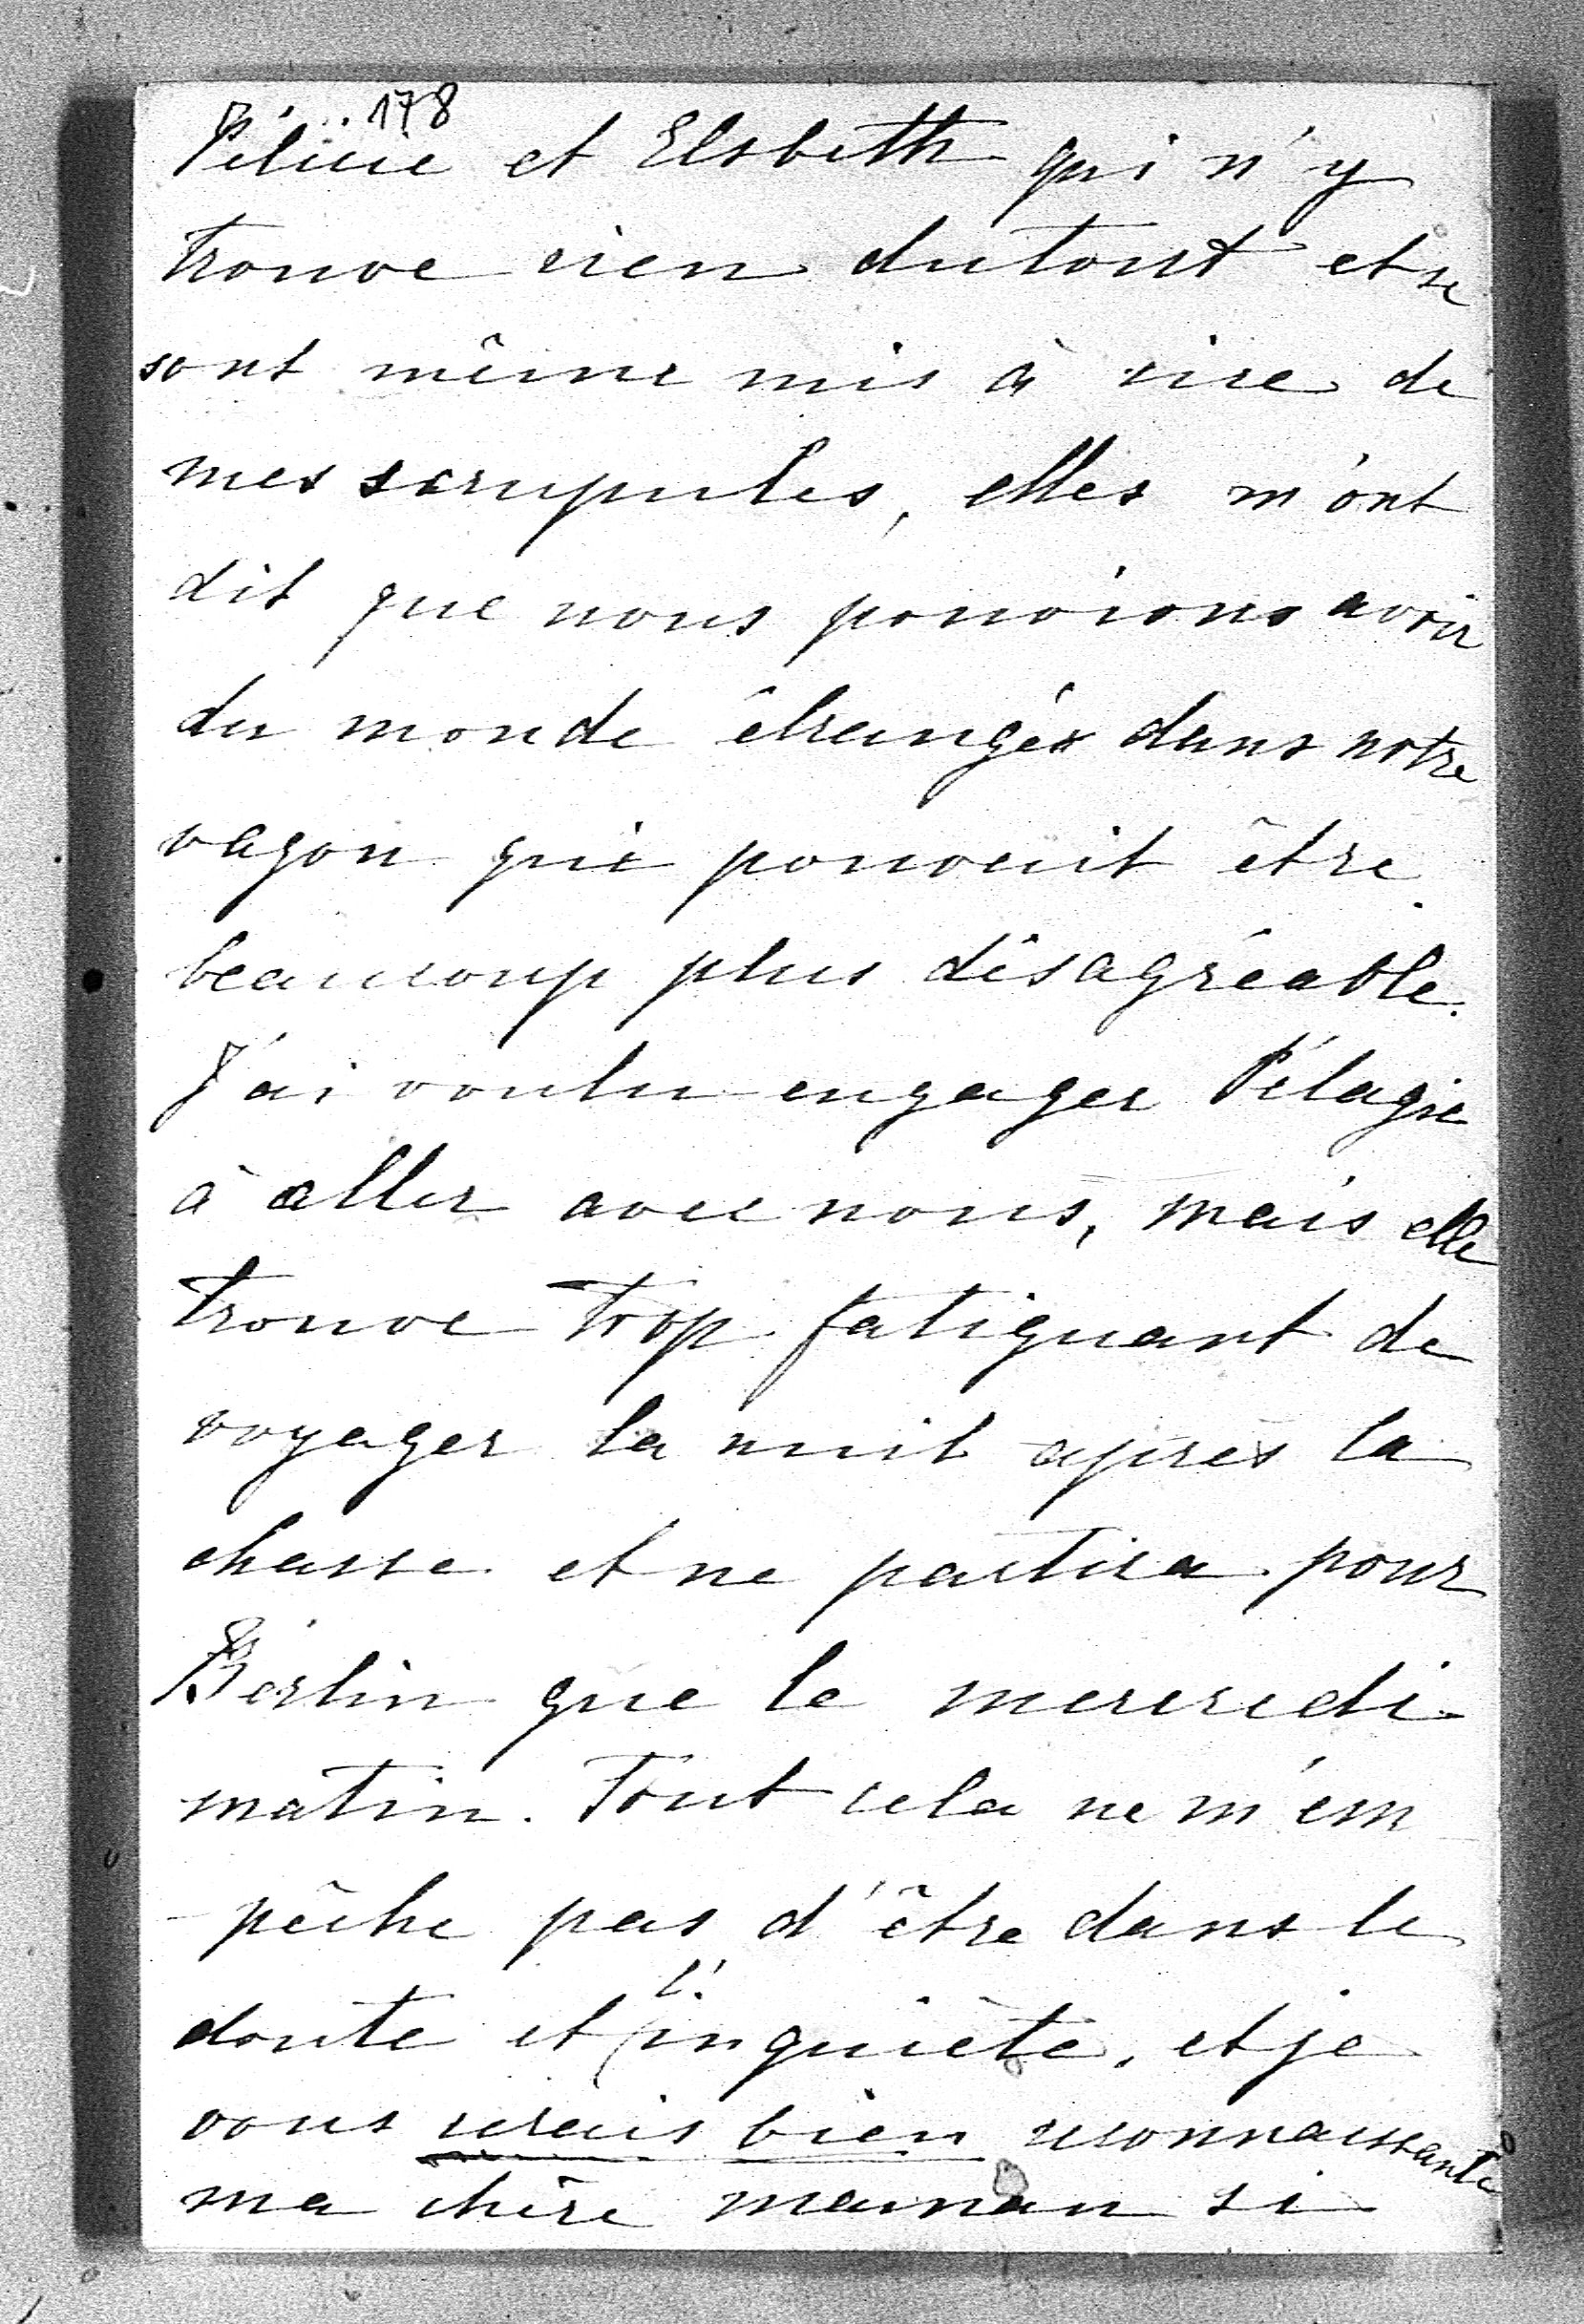 178
Félicie et Elsbeth qui n'y
trouve rien du tout et se
sont même mis à rire de
mes scrupules, elles m'ont
dit que nous pouvions avoir
du monde étranger dans notre
vagon qui pouvait être
beaucoup plus désagréable.
J'ai voulu engager Pélagie
à aller avec nous, mais elle
trouve trop fatiguant de
voyager la nuit après la
chasse et ne partira pour
Berlin que le mercredi
matin. Tout cela ne m'em
-pêche pas d'être dans le
doute et l'inquiète, et je
vous serais bien reconnaissante
ma chère maman si